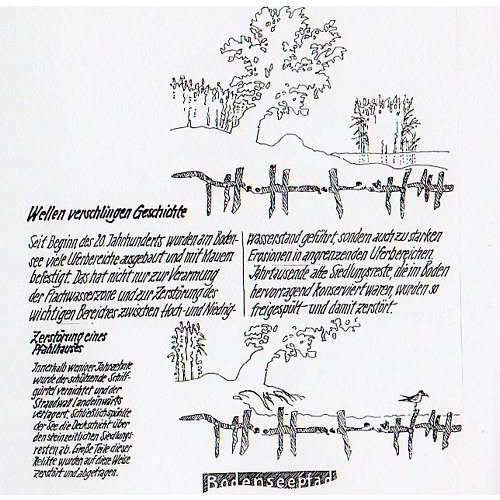 Wellen verschlingen Geschichte
Seit Beginn des 20. Jahrhunderts wurden am Boden-
see viele Uferbereiche ausgebaut und mit Mauern
befestigt. Das hat nicht nur zur Verarmung
der Flachwasserzone und zur Zerstörung des
wichtigen Bereiches zwischen Hoch- und Niedrig-
wasserstand geführt, sondern auch zu starken
Erosionen in angrenzenden Uferbereichen.
Jahrtausende alte Siedlungsreste, die im Boden
hervorragend konserviert waren, wurden so
freigespült – und damit zerstört.
Zerstörung eines
Pfahlhauses
Innerhalb weniger Jahrzehnte
wurde der schützende Schilf-
gürtel vernichtet und der
Strandwall landeinwärts
verlagert. Schließlich spülte
der See die Deckschicht über
den steinzeitlichen Siedlungs-
resten ab. Große Teile dieser
Relikte wurden auf diese Weise
zerstört und abgetragen.
Bodenseepfad